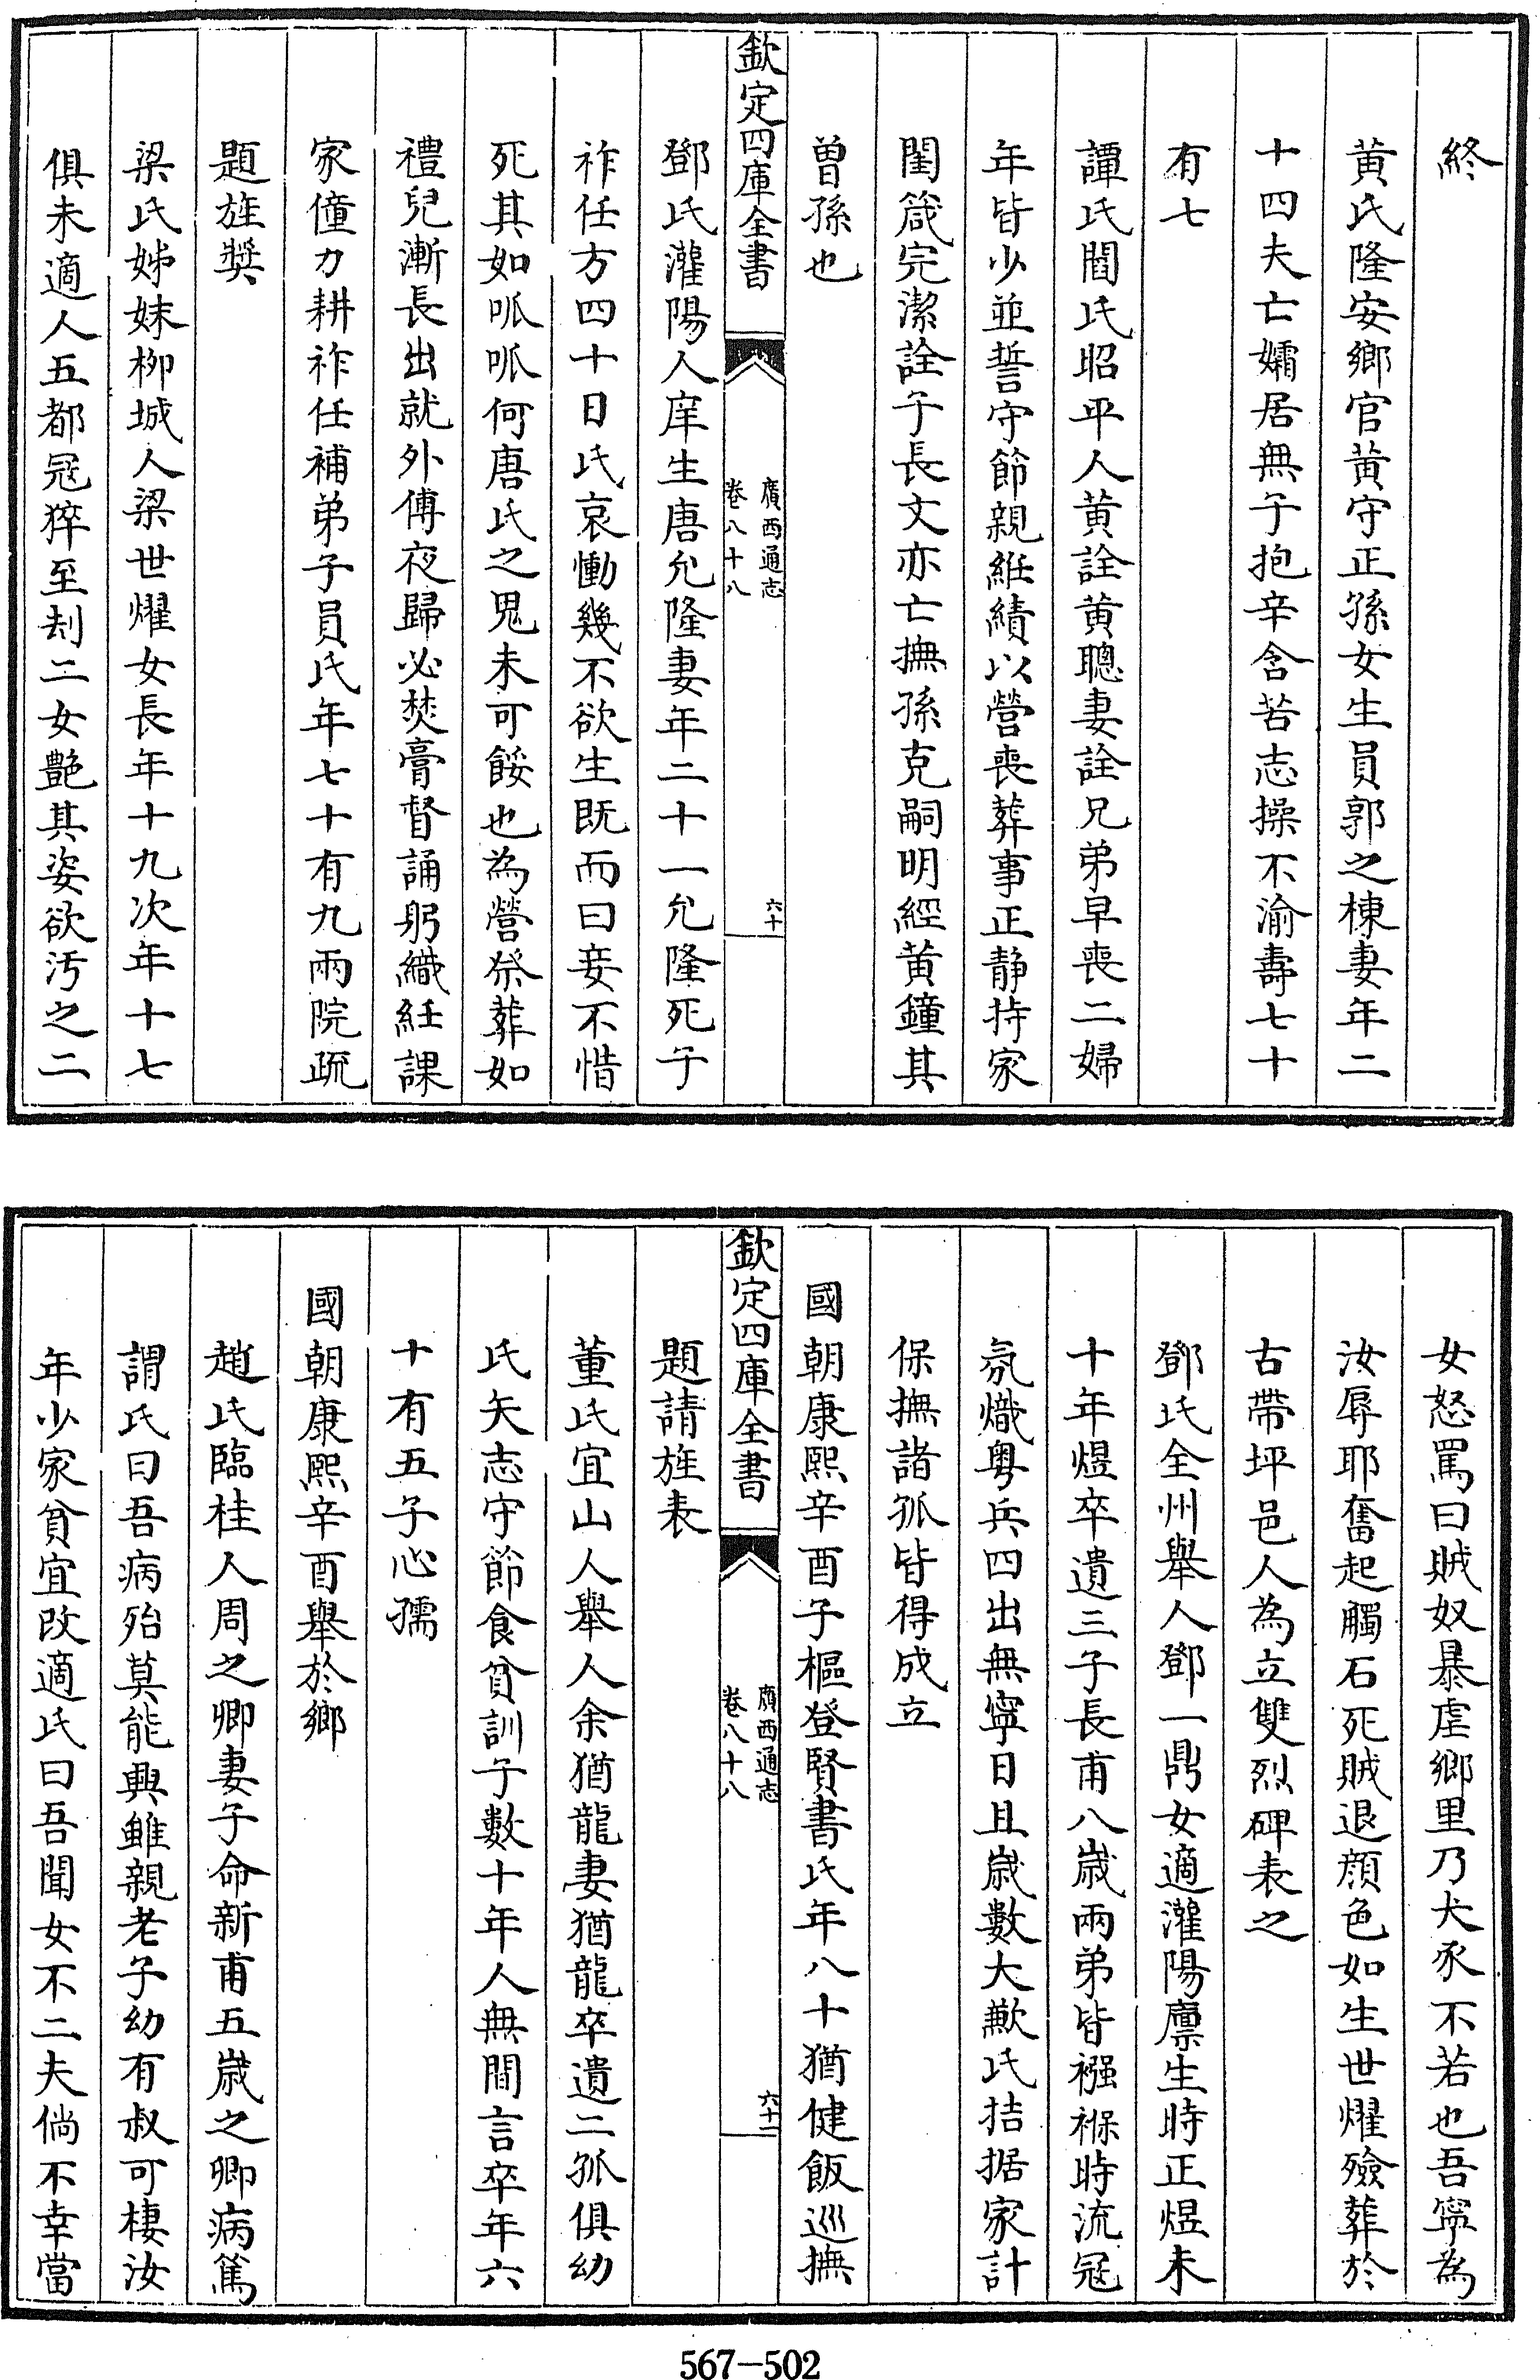 終
黄氏隆安鄉官黄守正孫女生員郭之棟妻年二
十四夫亡孀居無子抱辛含苦志操不渝壽七十
有七
譚氏閻氏昭平人黄詮黄聰妻詮兄弟早喪二婦
年皆少並誓守節親絍績以營喪葬事正静持家
閨箴完潔詮子長文亦亡撫孫克嗣明經黄鐘其
曽孫也
欽定四庫全書
廣西通志
卷八十八
六十
鄧氏灌陽人庠生唐允隆妻年二十一允隆死子
祚任方四十日氏哀慟幾不欲生既而曰妾不惜
死其如呱呱何唐氏之鬼未可餒也為營祭葬如
禮兒漸長出就外傅夜歸必焚膏督誦躬織絍課
家僮力耕祚任補弟子員氏年七十有九兩院疏
題旌奬
梁氏姊妹柳城人梁世燿女長年十九次年十七
俱未適人五都冦猝至刦二女艶其姿欲汚之二
女怒罵曰賊奴暴虐鄉里乃犬豕不若也吾寧為
汝辱耶奮起觸石死賊退顔色如生世燿殮葬於
古帶坪邑人為立雙烈碑表之
鄧氏全州舉人鄧一鼎女適灌陽廪生時正煜未
十年煜卒遺三子長甫八嵗兩弟皆襁褓時流冦
氛熾粤兵四出無寧日且嵗數大歉氏拮据家計
保撫諸孤皆得成立
國朝康熙辛酉子樞登賢書氏年八十猶健飯巡撫
欽定四庫全書
廣西通志
卷八十八
六十一
題請旌表
董氏宜山人舉人余猶龍妻猶龍卒遺二孤俱幼
氏矢志守節食貧訓子數十年人無間言卒年六
十有五子心孺
國朝康熙辛酉舉於鄉
趙氏臨桂人周之卿妻子命新甫五嵗之卿病篤
謂氏曰吾病殆莫能興雖親老子幼有叔可棲汝
年少家貧宜改適氏曰吾聞女不二夫倘不幸當
567-502